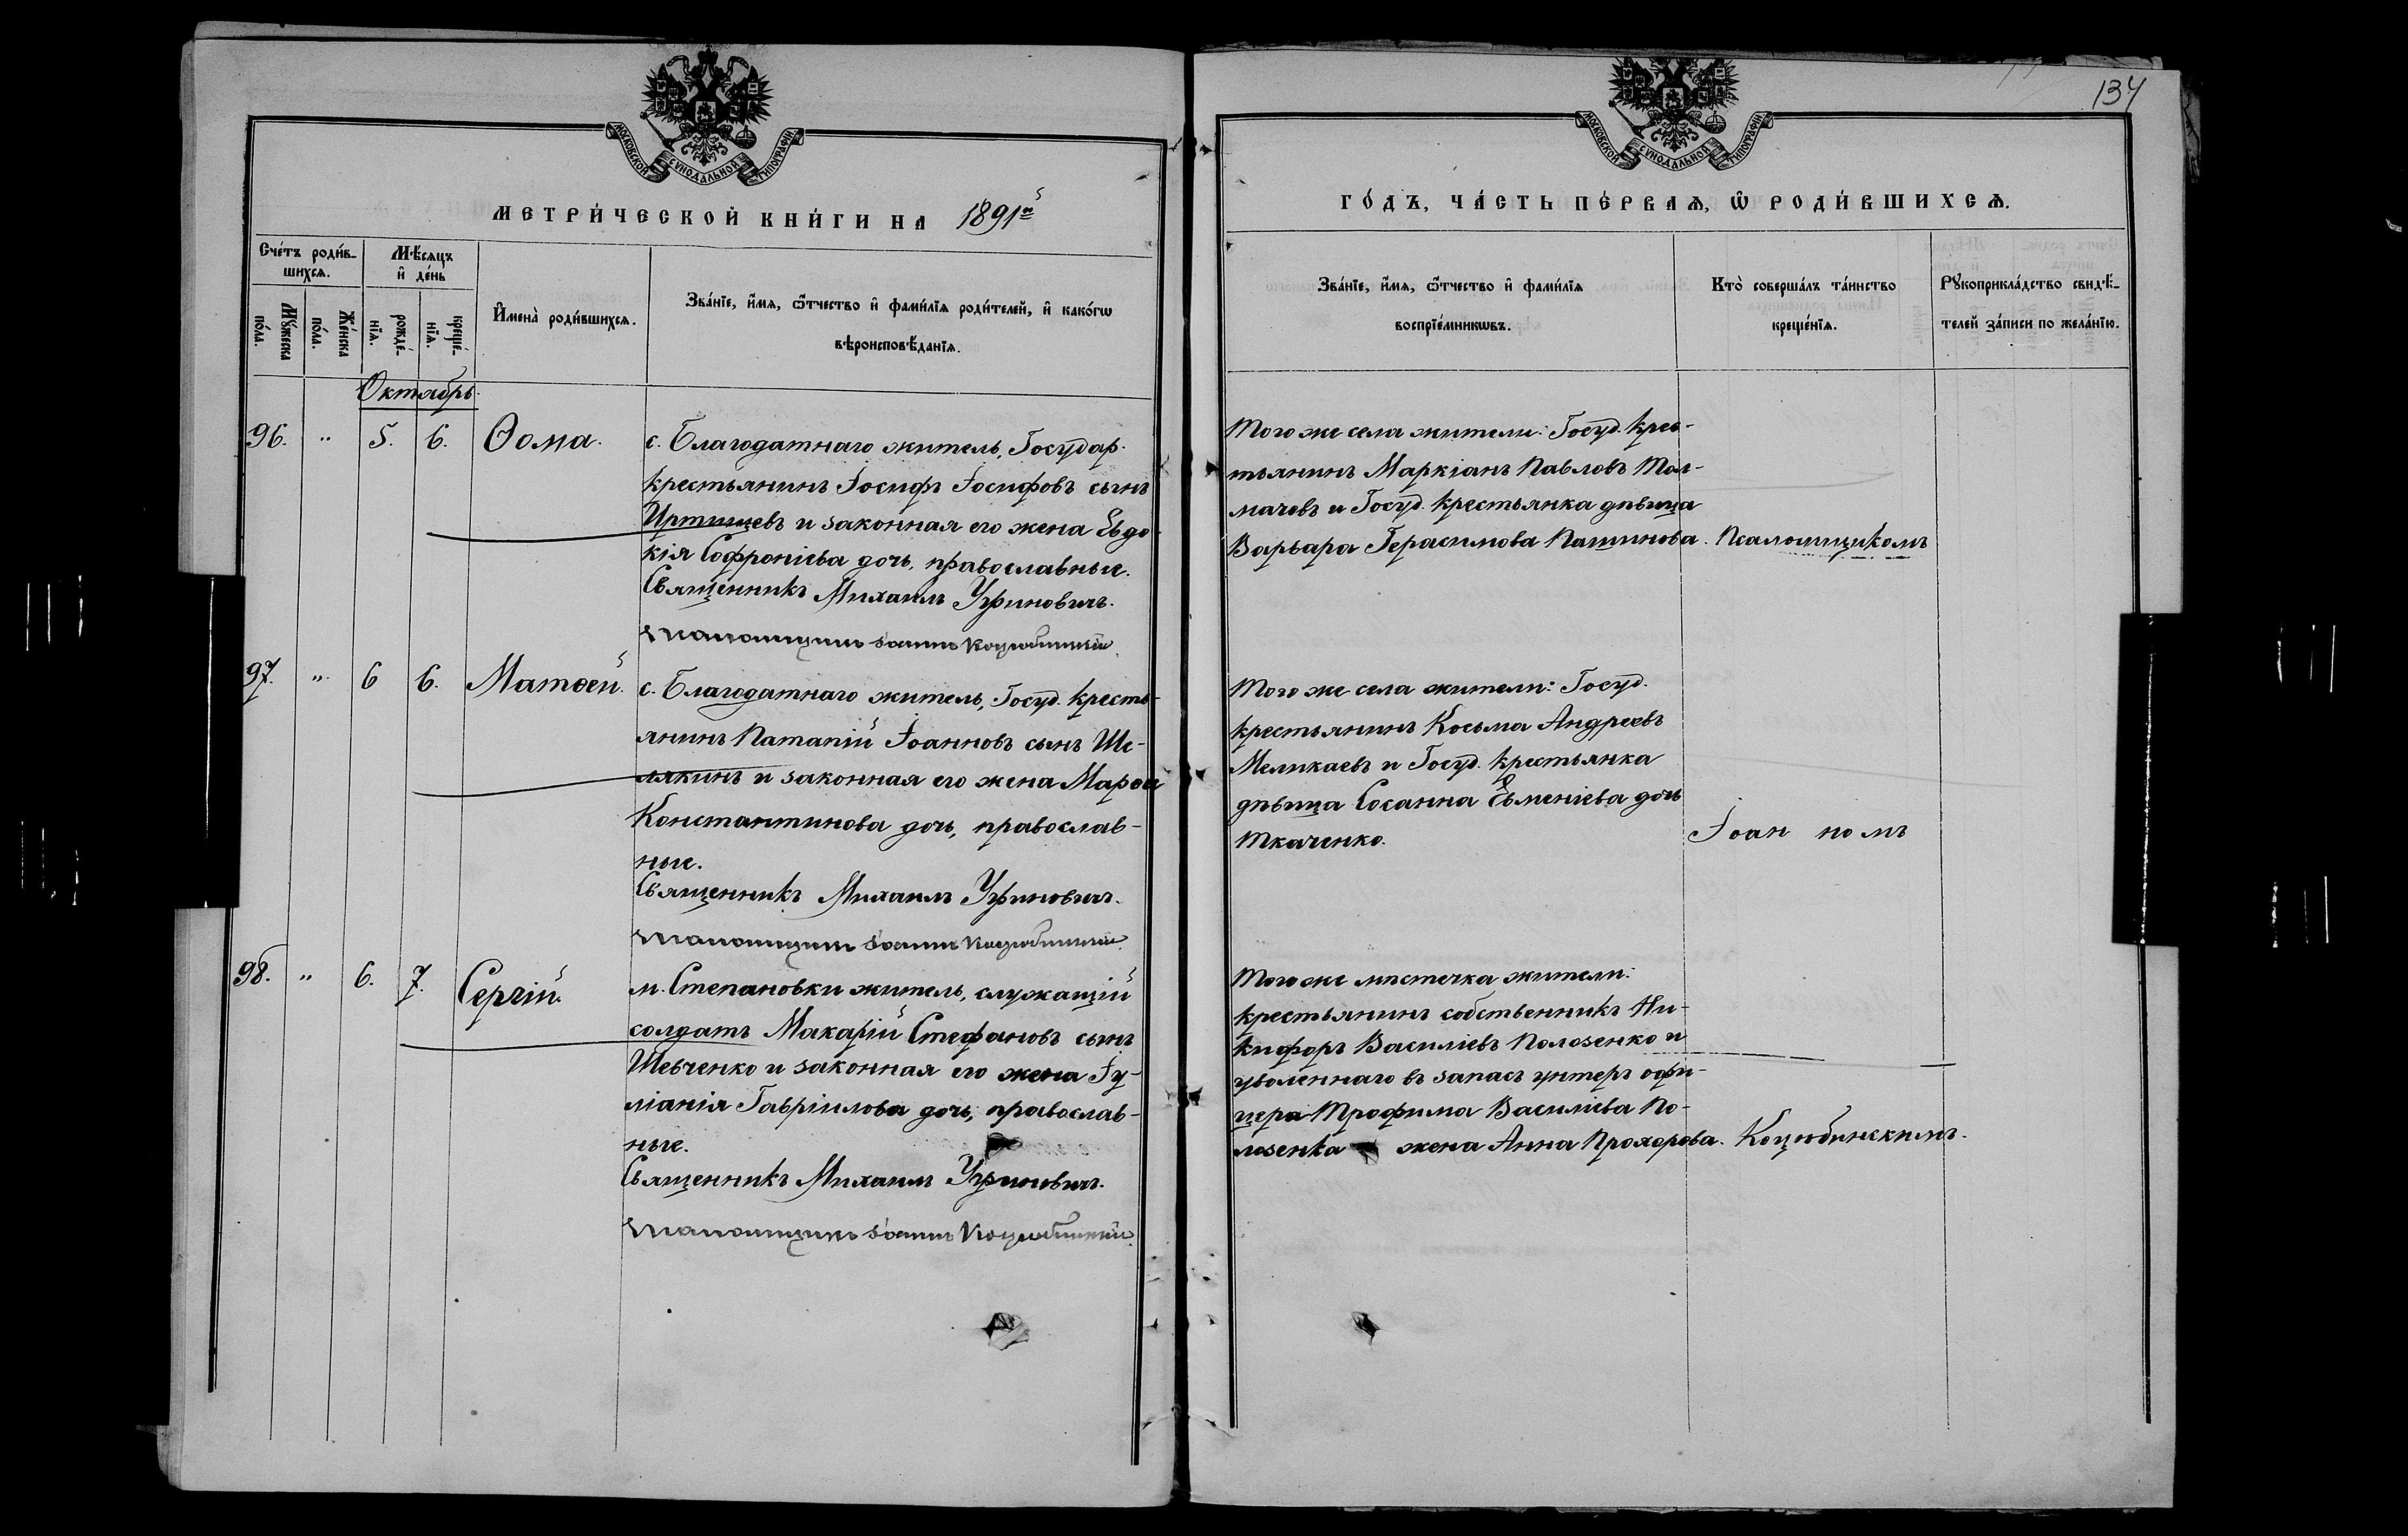 МОСКОВСКОЙ СѴНОДАЛЬНОЙ ТИПОГРАФІИ
МЕТРИ́ЧЕСКОЙ КНИ́ГИ НА 1891й
Сче́тъ роди́в-
шихсѧ.
Мѣ́сѧцъ
и҆ де́нь
Мꙋ́жеска
по́ла.
Же́нска
по́ла.
рожде́-
нїѧ.
креще́-
нїѧ.
И҆мена̀ роди́вшихсѧ.
Зва́нїе, и҆́мѧ, ѻ҆́тчество и҆ фами́лїѧ роди́телей, и҆ како́гѡ
вѣроисповѣ́данїѧ.
Октябрь
96. " 5. 6. Ѳома.
с. Благодатнаго житель, Государ.
крестьянинъ Іосифъ Іосифовъ сынъ
Иртищевъ и законная его жена Евдо-
кія Софроніева дочь, православные.
Священникъ Михаилъ Угриновичъ.
Псаломщикъ Іоаннъ Коцюбинскій.
97. " 6 6. Матѳей.
с. Благодатнаго житель, Госуд. кресть-
янинъ Патапій Іоанновъ сынъ Ше-
лякинъ и законная его жена Марѳа
Константинова дочь, православ-
ные.
Священникъ Михаилъ Угриновичъ.
Псаломщикъ Іоаннъ Коцюбинскій.
98. " 6. 7. Сергій.
м. Степановки житель, служащій
солдатъ Макарій Стефановъ сынъ
Шевченко и законная его жена Іу-
ліанія Гавріилова дочь, православ-
ные.
Священникъ Михаилъ Угриновичъ.
Псаломщикъ Іоаннъ Коцюбинскій.
134
МОСКОВСКОЙ СѴНОДАЛЬНОЙ ТИПОГРАФІИ
ГО́ДЪ, ЧА́СТЬ ПЕ́РВАѦ, Ѡ҆ РОДИ́ВШИХСѦ.
Зва́нїе, и҆́мѧ, ѻ҆́тчество и҆ фами́лїѧ
воспрїе́мникѡвъ.
Кто̀ соверша́лъ та́инство
креще́нїѧ.
Рꙋкоприкла́дство свидѣ́-
телей за́писи по жела́нїю.
Того же села жители: Госуд. крес-
тьянинъ Маркіанъ Павловъ Тол-
мачевъ и Госуд. крестьянка дѣвица
Варвара Герасимова Пашинова. Псаломщикомъ
Того же села жители: Госуд.
крестьянинъ Косьма Андреевъ
Меликаевъ и Госуд. крестьянка
дѣвица Сосанна Евменіева дочь
Ткаченко.
Іоанномъ
Того же мѣстечка жители:
крестьянинъ собственникъ Ни-
кифоръ Василіевъ Полозенко и
уволеннаго въ запасъ унтеръ офи-
цера Трофима Василіева По-
лозенка жена Анна Прохорова. Коцюбинскимъ.